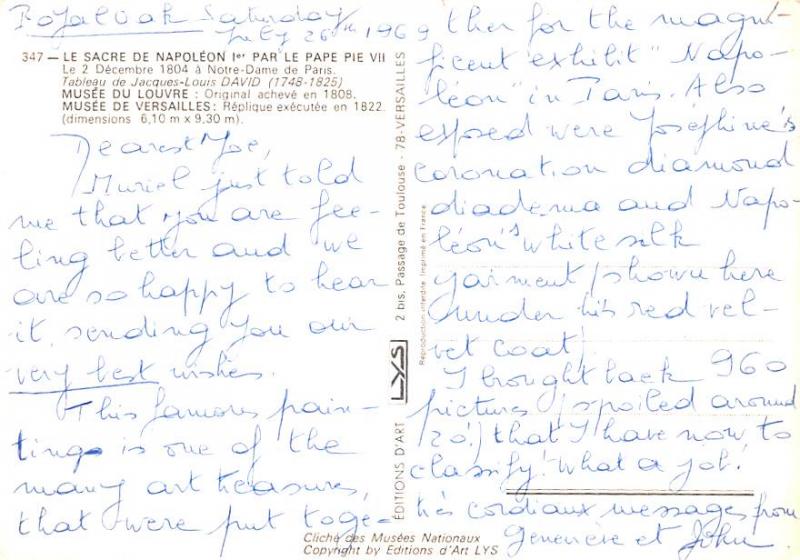 Royal Oak Saturday
July 26th 1969
347 — LE SACRE DE NAPOLÉON Ier PAR LE PAPE PIE VII
Le 2 Décembre 1804 à Notre-Dame de Paris.
Tableau de Jacques-Louis DAVID (1748-1825)
MUSÉE DU LOUVRE : Original achevé en 1808.
MUSÉE DE VERSAILLES : Réplique exécutée en 1822.
(dimensions 6,10 m x 9,30 m).
Dearest Moe,
Muriel just told
me that you are fee-
ling better and we
are so happy to hear
it, sending you our
very best wishes.
This famous pain-
ting is one of the
many art treasures,
that were put toge-
ther for the magni-
ficent exhibit "Napo-
léon" in Paris. Also
exposed were Joséphine's
coronation diamond
diadema and Napo-
léon's white silk
garment (shown here
under his red vel-
vet coat)
I brought back 960
pictures (spoiled around
20!) that I have now to
classify! What a job!
très cordiaux messages from
Geneviève et John
EDITIONS D'ART LYS 2 bis, Passage de Toulouse - 78-VERSAILLES
Reproduction interdite Imprimé en France
Cliché des Musées Nationaux
Copyright by Editions d'Art LYS